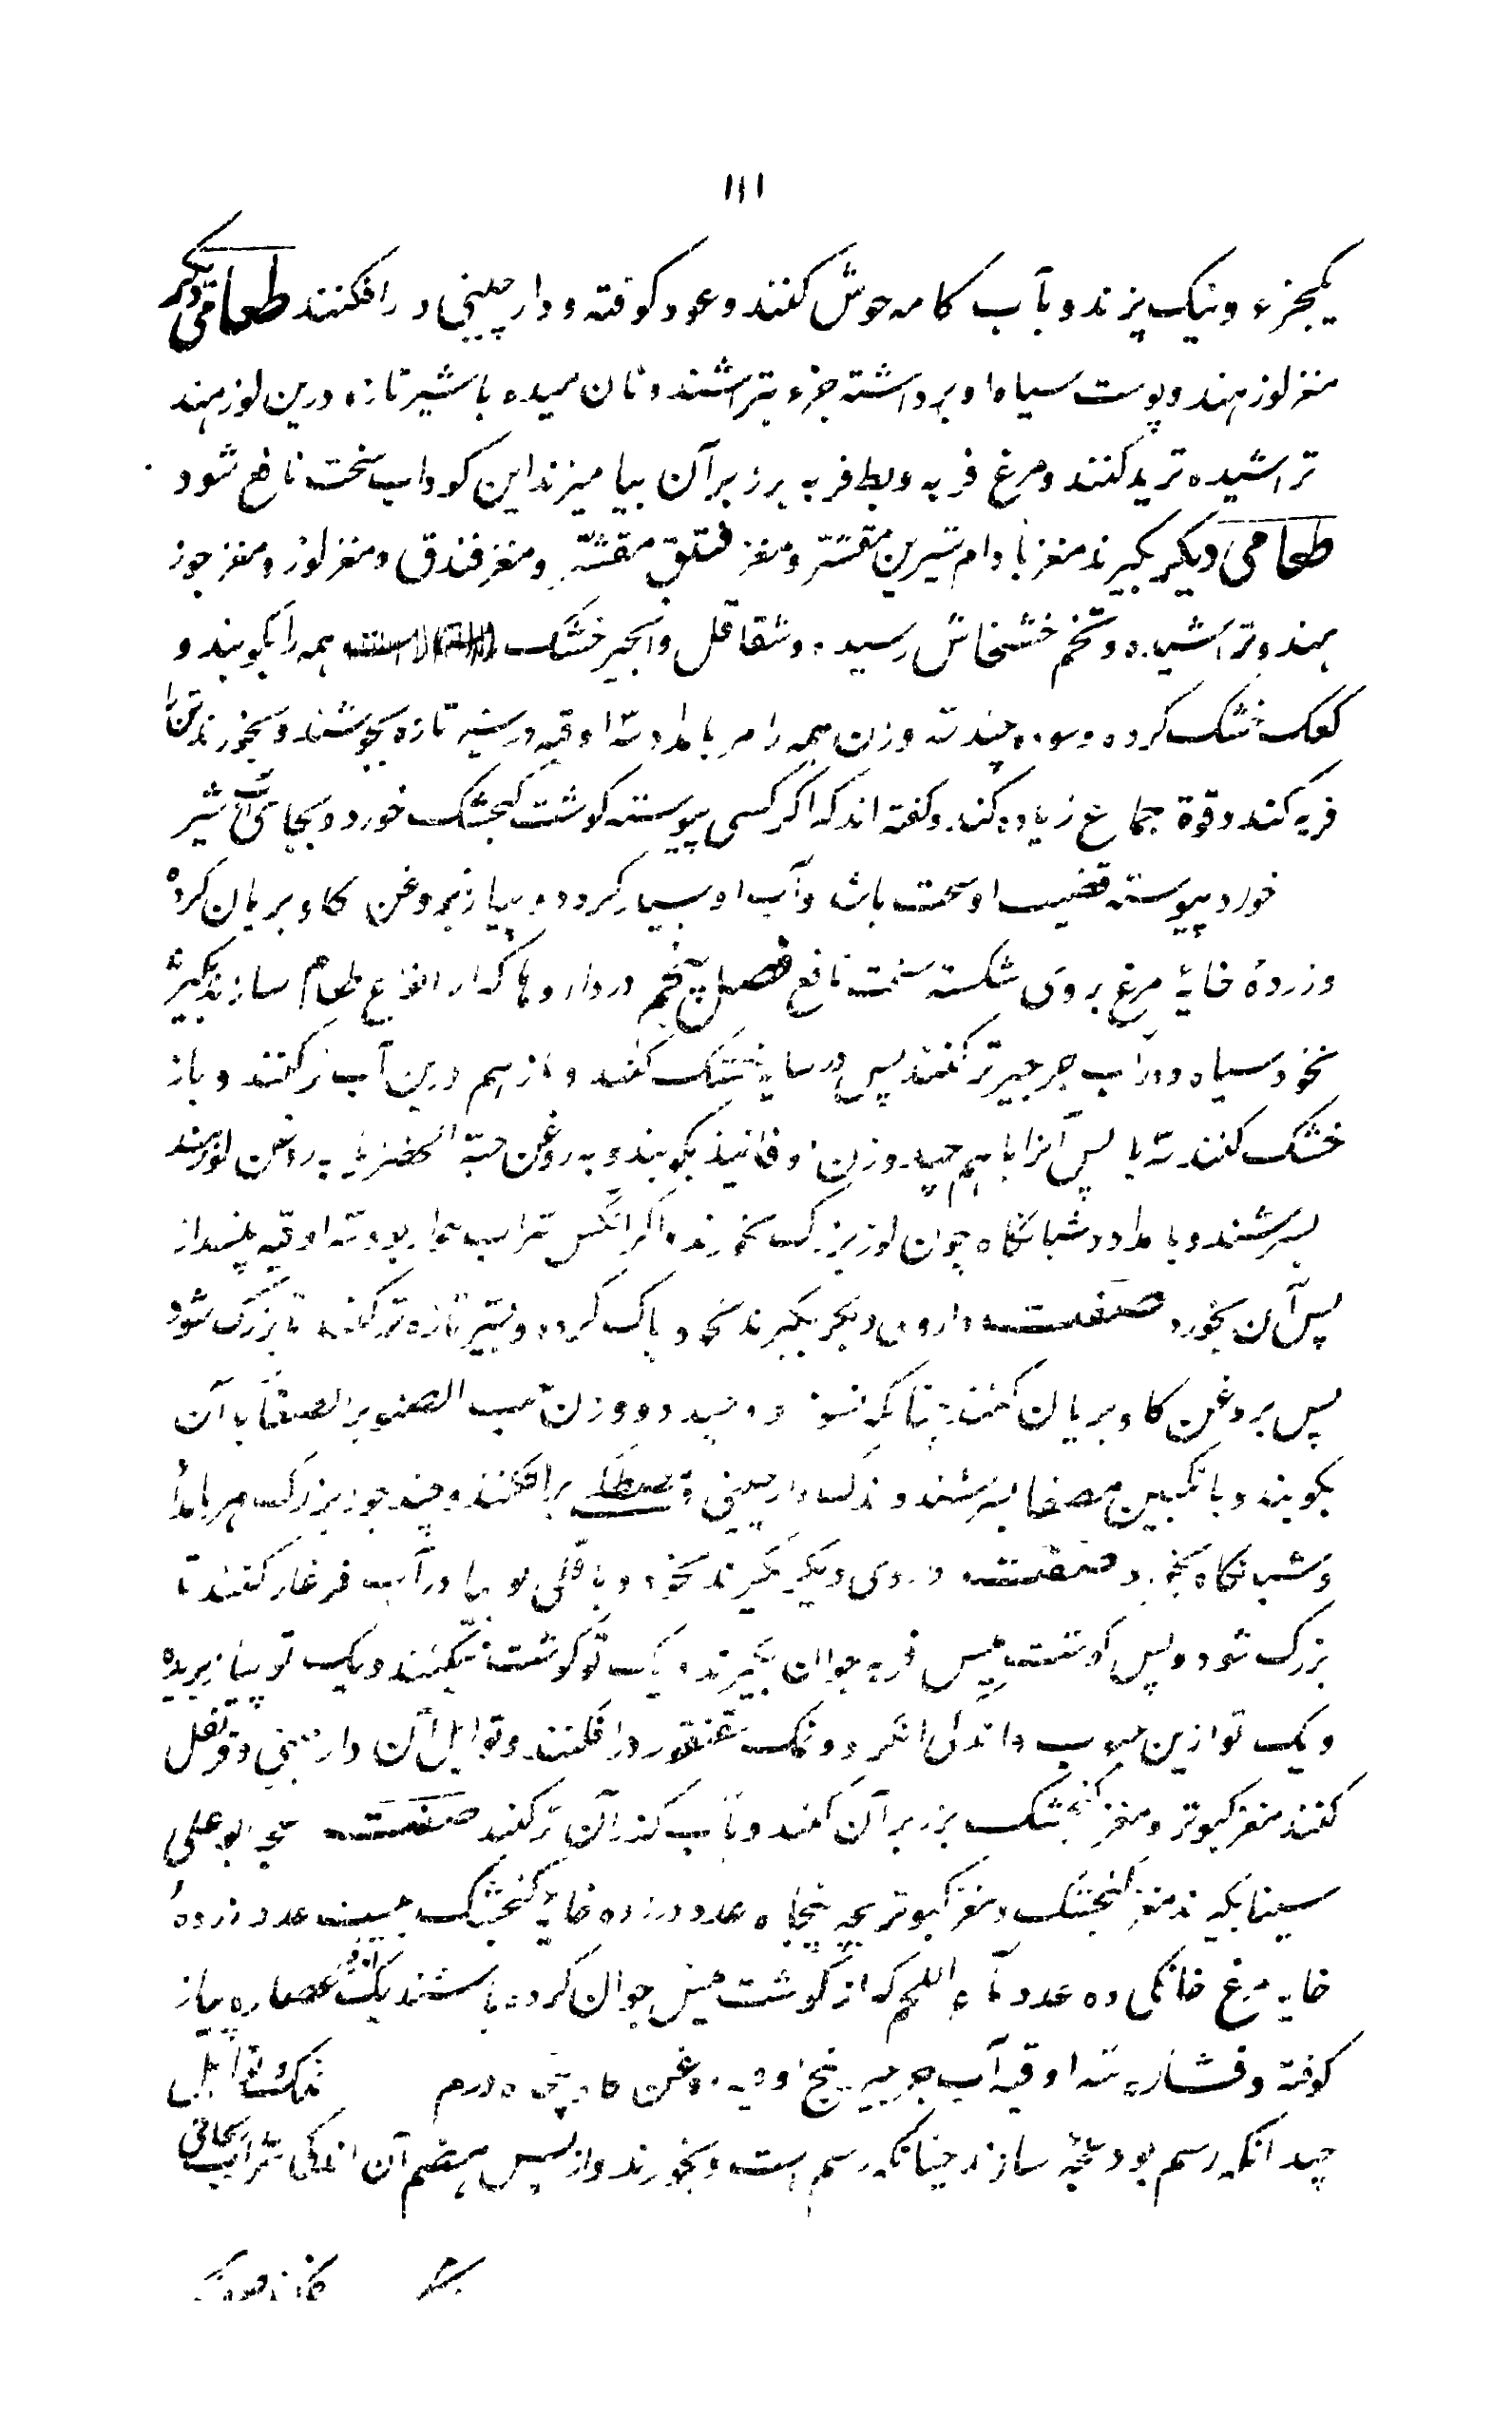 ۱۱۱
یکجزء و نیک بپزند و بآب کامه خوش کنند و عود کوفته و دارچینی در افکنند طعامی دیگر
مغز لوز هند و پوست سیاه او برداشته جزء بتراشند و نان میده با شیر تازه درین لوز هند
تراشیده ترید کنند و مرغ فربه و بط فربه بر زبر آن بیامیزند این کوداب سخت نافع شود
طعامی دیگر بگیرند مغز بادام شیرین مقشر و مغز فستق مقشر و مغز فندق و مغز لوز و مغز جوز
هند و تراشیده و تخم خشخاش رسیده و شقاقل و انجیر خشک همه را بکوبند و
کعک خشک کرده و سوده چند سه وزن همه را هر بامداد سه اوقیه در شیر تازه بجوشند و بخورند تن را
فربه کند و قوة جماع زیاده کند و گفته اند که اگر کسی پیوسته کوشت کنجشک خورد و بجای آب شیر
خورد پیوسته قضیب او سخت باشد و آب او بسیار کردد و پیاز بروغن کاو بریان کرده
و زردهٔ خایهٔ مرغ بروی شکسته سخت نافع فصل پنجم در داروها که از انواع طعام سازند بگیرند
نخود سیاه و در آب جرجیر تر کنند پس در سایه خشک کنند و باز هم درین آب تر کنند و باز
خشک کنند سه بار پس آنرا با هم چند وزن او فانیذ بکوبند و به روغن حبة الخضرا یا به روغن لوز هند
بسرشند و بامداد و شبانگاه چون لوز بزرک بخورند و اگر آنکس شراب خوار بود سه اوقیه نبیذ از
پس آن بخورد صفت داروی دیگر بگیرند نخود پاک کرده و بشیر تازه تر کنند تا بزرک شود
پس بروغن کاو بریان کنند چنانکه نسوزد و چند دو وزن حب الصنوبر الصغار با آن
بکوبند و بانگبین مصفا بسرشند و اندک دارچینی و مصطکا برافکنند و چند جوز بزرک هر بامداد
و شبانگاه بخورد صفت داروی دیگر بگیرند نخود و باقلی و لوبیا در آب فرغار کنند تا
بزرک شود و پس کوشت میش فربه جوان بگیرند و یک تو کوشت بیفکنند و یک تو پیاز بریده
و یک تو ازین حبوب و اندکی انگزد و نمک سقنقور در افکنند و توابل آن دارچینی و قرنفل
کنند مغز کبوتر و مغز کنجشک بر زبر آن کنند و بآب کندر آن تر کنند صفت عجه بوعلی
سینا بگیرند مغز کنجشک و مغز کبوتر بچه پنجاه عدد و زرده خایهٔ کنجشک بیست عدد زردهٔ
خایه مرغ خانکی ده عدد ماء اللحم که از کوشت میش جوان کرده باشند یک عصاره پیاز
کوفته و فشارده سه اوقیه آب جرجیر پنج اوقیه روغن کاو پنجاه درم نمک و توابل
چندانکه رسم بود عجه سازند چنانکه رسم است و بخورند و از پس هضم آن اندکی شراب ریحانی